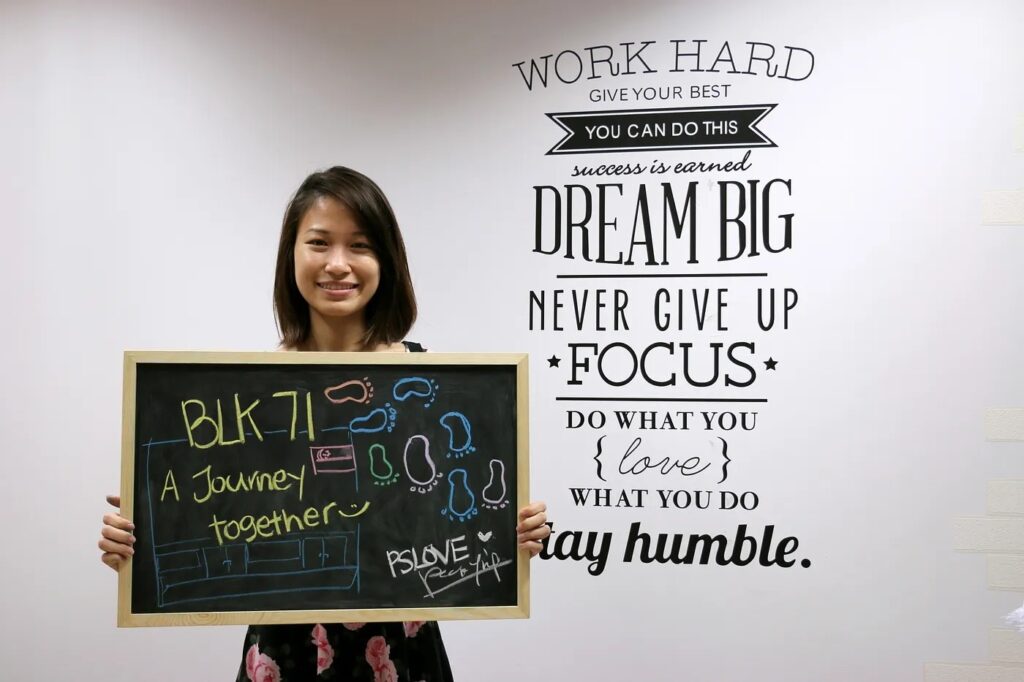 BLK 71
A Journey
together
PSLOVE
WORK HARD
GIVE YOUR BEST
YOU CAN DO THIS
success is earned
DREAM BIG
NEVER GIVE UP
FOCUS
DO WHAT YOU
{love}
WHAT YOU DO
tay humble.